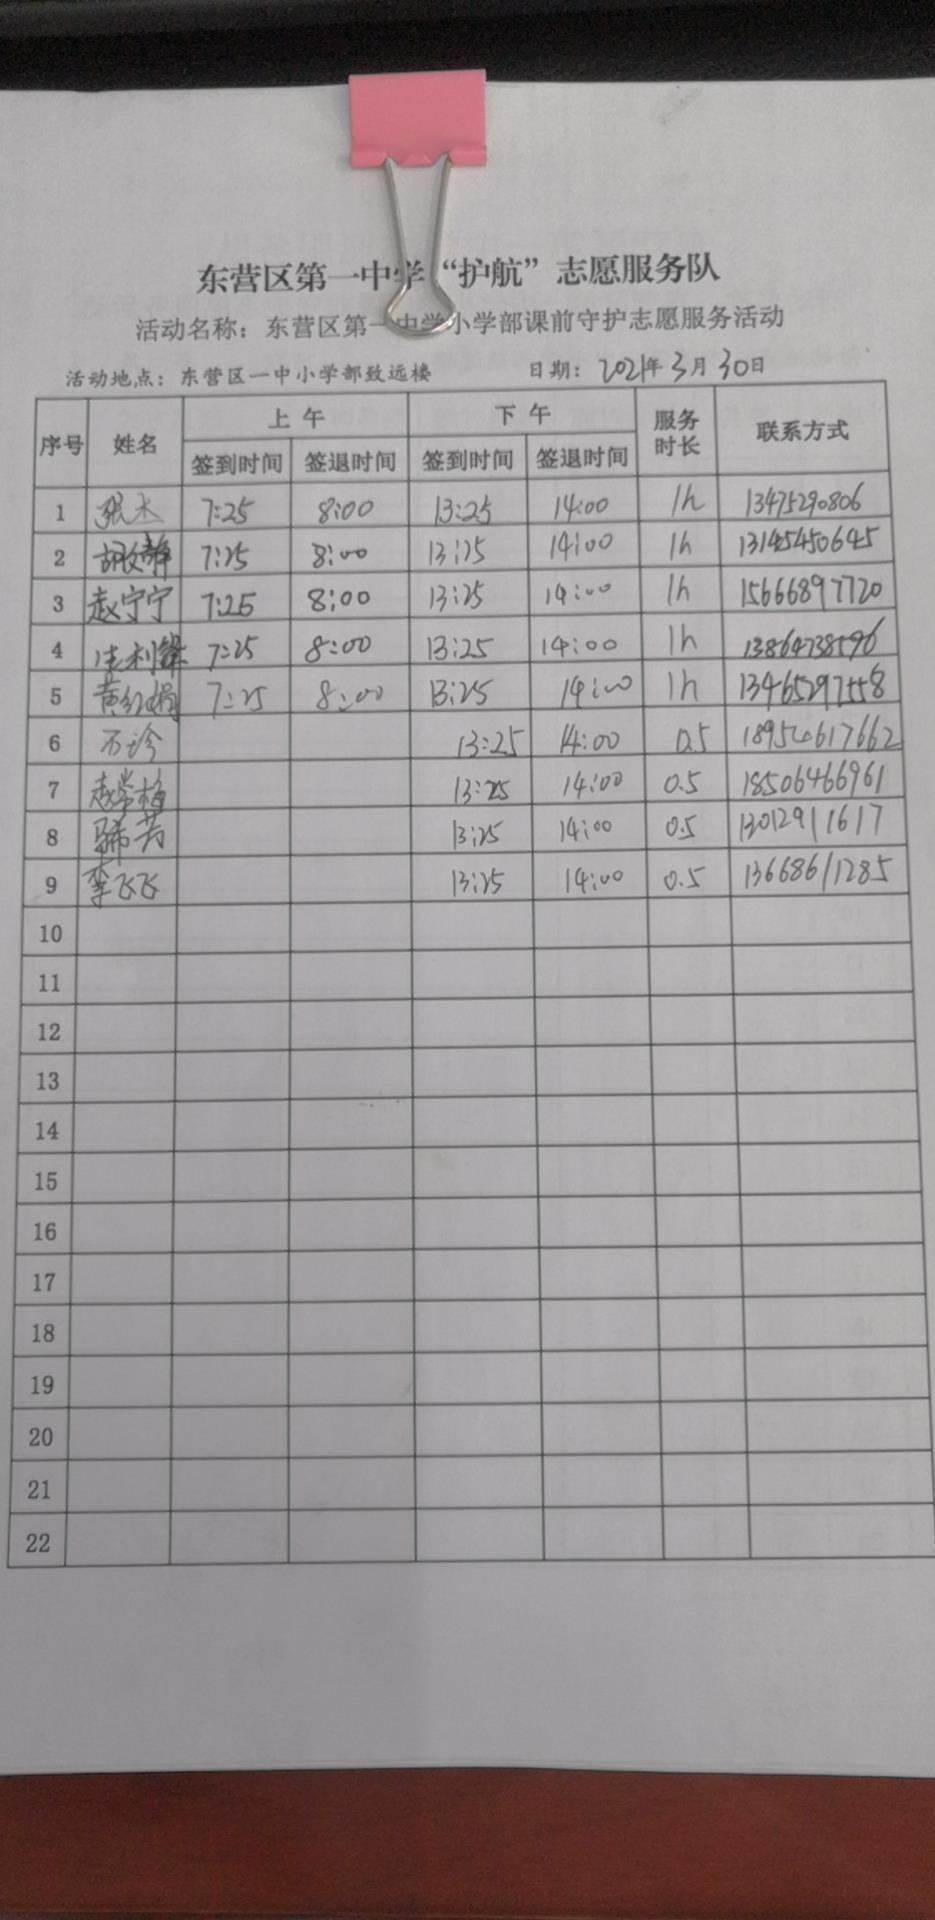 东营区第一中学“护航”志愿服务队
活动名称：东营区第一中学小学部课前守护志愿服务活动
活动地点：东营区一中小学部致远楼 日期：2021年3月30日
序号 姓名 上午 下午 服务时长 联系方式
签到时间 签退时间 签到时间 签退时间
1 张杰 7:25 8:00 13:25 14:00 1h 13475290806
2 7:25 8:00 13:25 14:00 1h 13145450645
3 赵宁宁 7:25 8:00 13:25 14:00 1h 15666897720
4 7:25 8:00 13:25 14:00 1h 13864738596
5 黄红娟 7:25 8:00 13:25 14:00 1h 13465297558
6 石珍 13:25 14:00 0.5 18954617662
7 赵常梅 13:25 14:00 0.5 18506466961
8 13:25 14:00 0.5 13012911617
9 李飞飞 13:25 14:00 0.5 13668611285
10
11
12
13
14
15
16
17
18
19
20
21
22